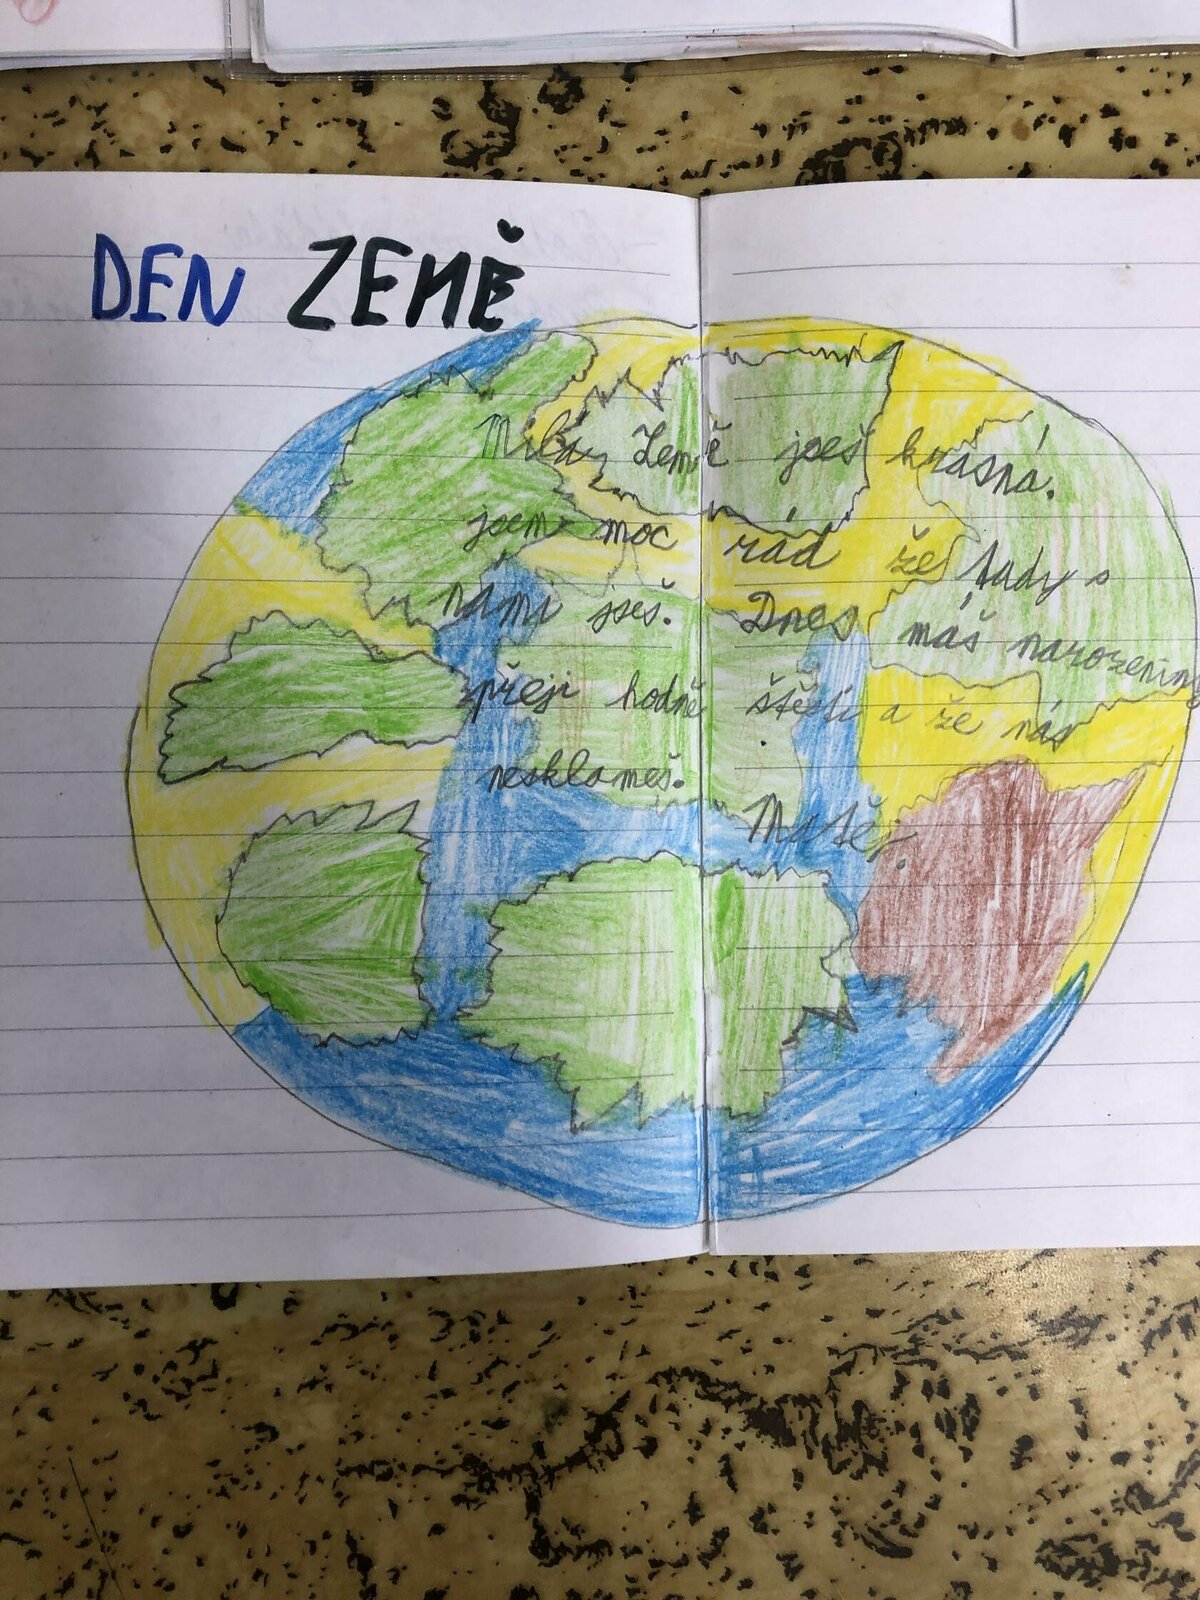 DEN ZEMĚ
Milá Země jseš krásná.
jsem moc rád že tady s
námi jseš. Dnes máš narozeniny
přeji hodně štěstí a že nás
nesklameš.
Matěj.